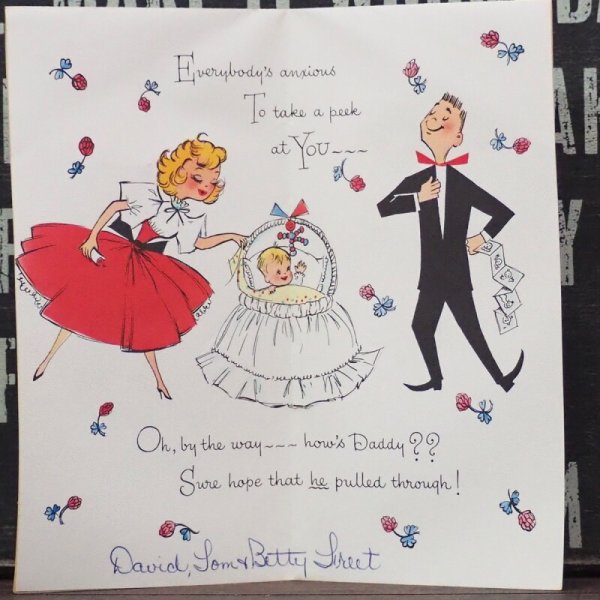 Everybody's anxious
To take a peek
at YOU~~~
Oh, by the way~~~ how's Daddy??
Sure hope that he pulled through!
David, Tom & Betty Street